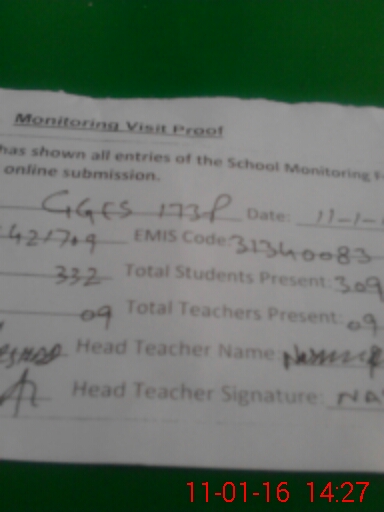 Monitoring Visit Proof
has shown all entries of the School Monitoring
online submission.
GGES 173P Date: 11-1-
421709 EMIS Code: 31340083
332 Total Students Present: 309
09 Total Teachers Present: 09
Head Teacher Name:
Head Teacher Signature: NA
11-01-16 14:27